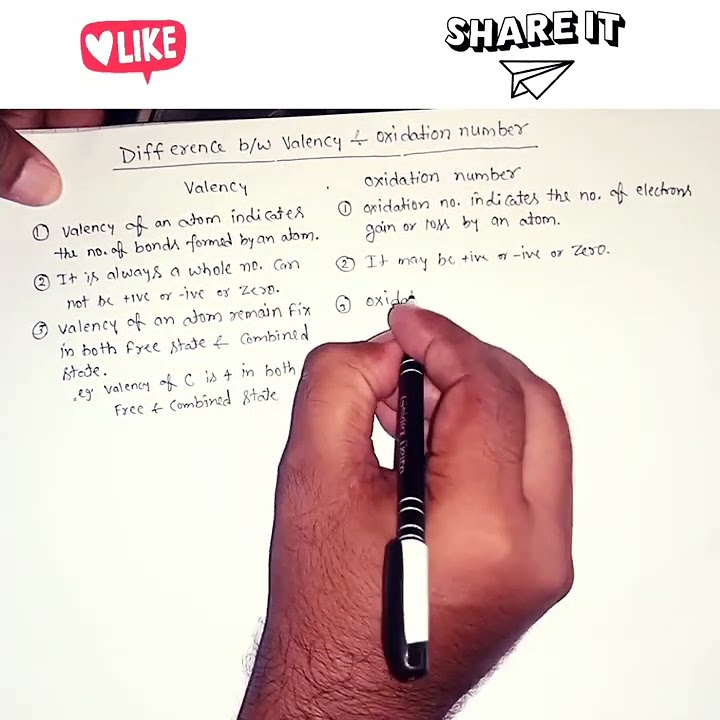 LIKE
SHARE IT
Difference b/w Valency & oxidation number
Valency
① Valency of an atom indicates
the no. of bonds formed by an atom.
② It is always a whole no. Can
not be +ive or -ive or Zero.
③ Valency of an atom remain fix
in both Free State & Combined
State.
eg Valency of C is 4 in both
Free & Combined State
oxidation number
① oxidation no. indicates the no. of electrons
gain or loss by an atom.
② It may be +ive or -ive or Zero.
③ oxidat